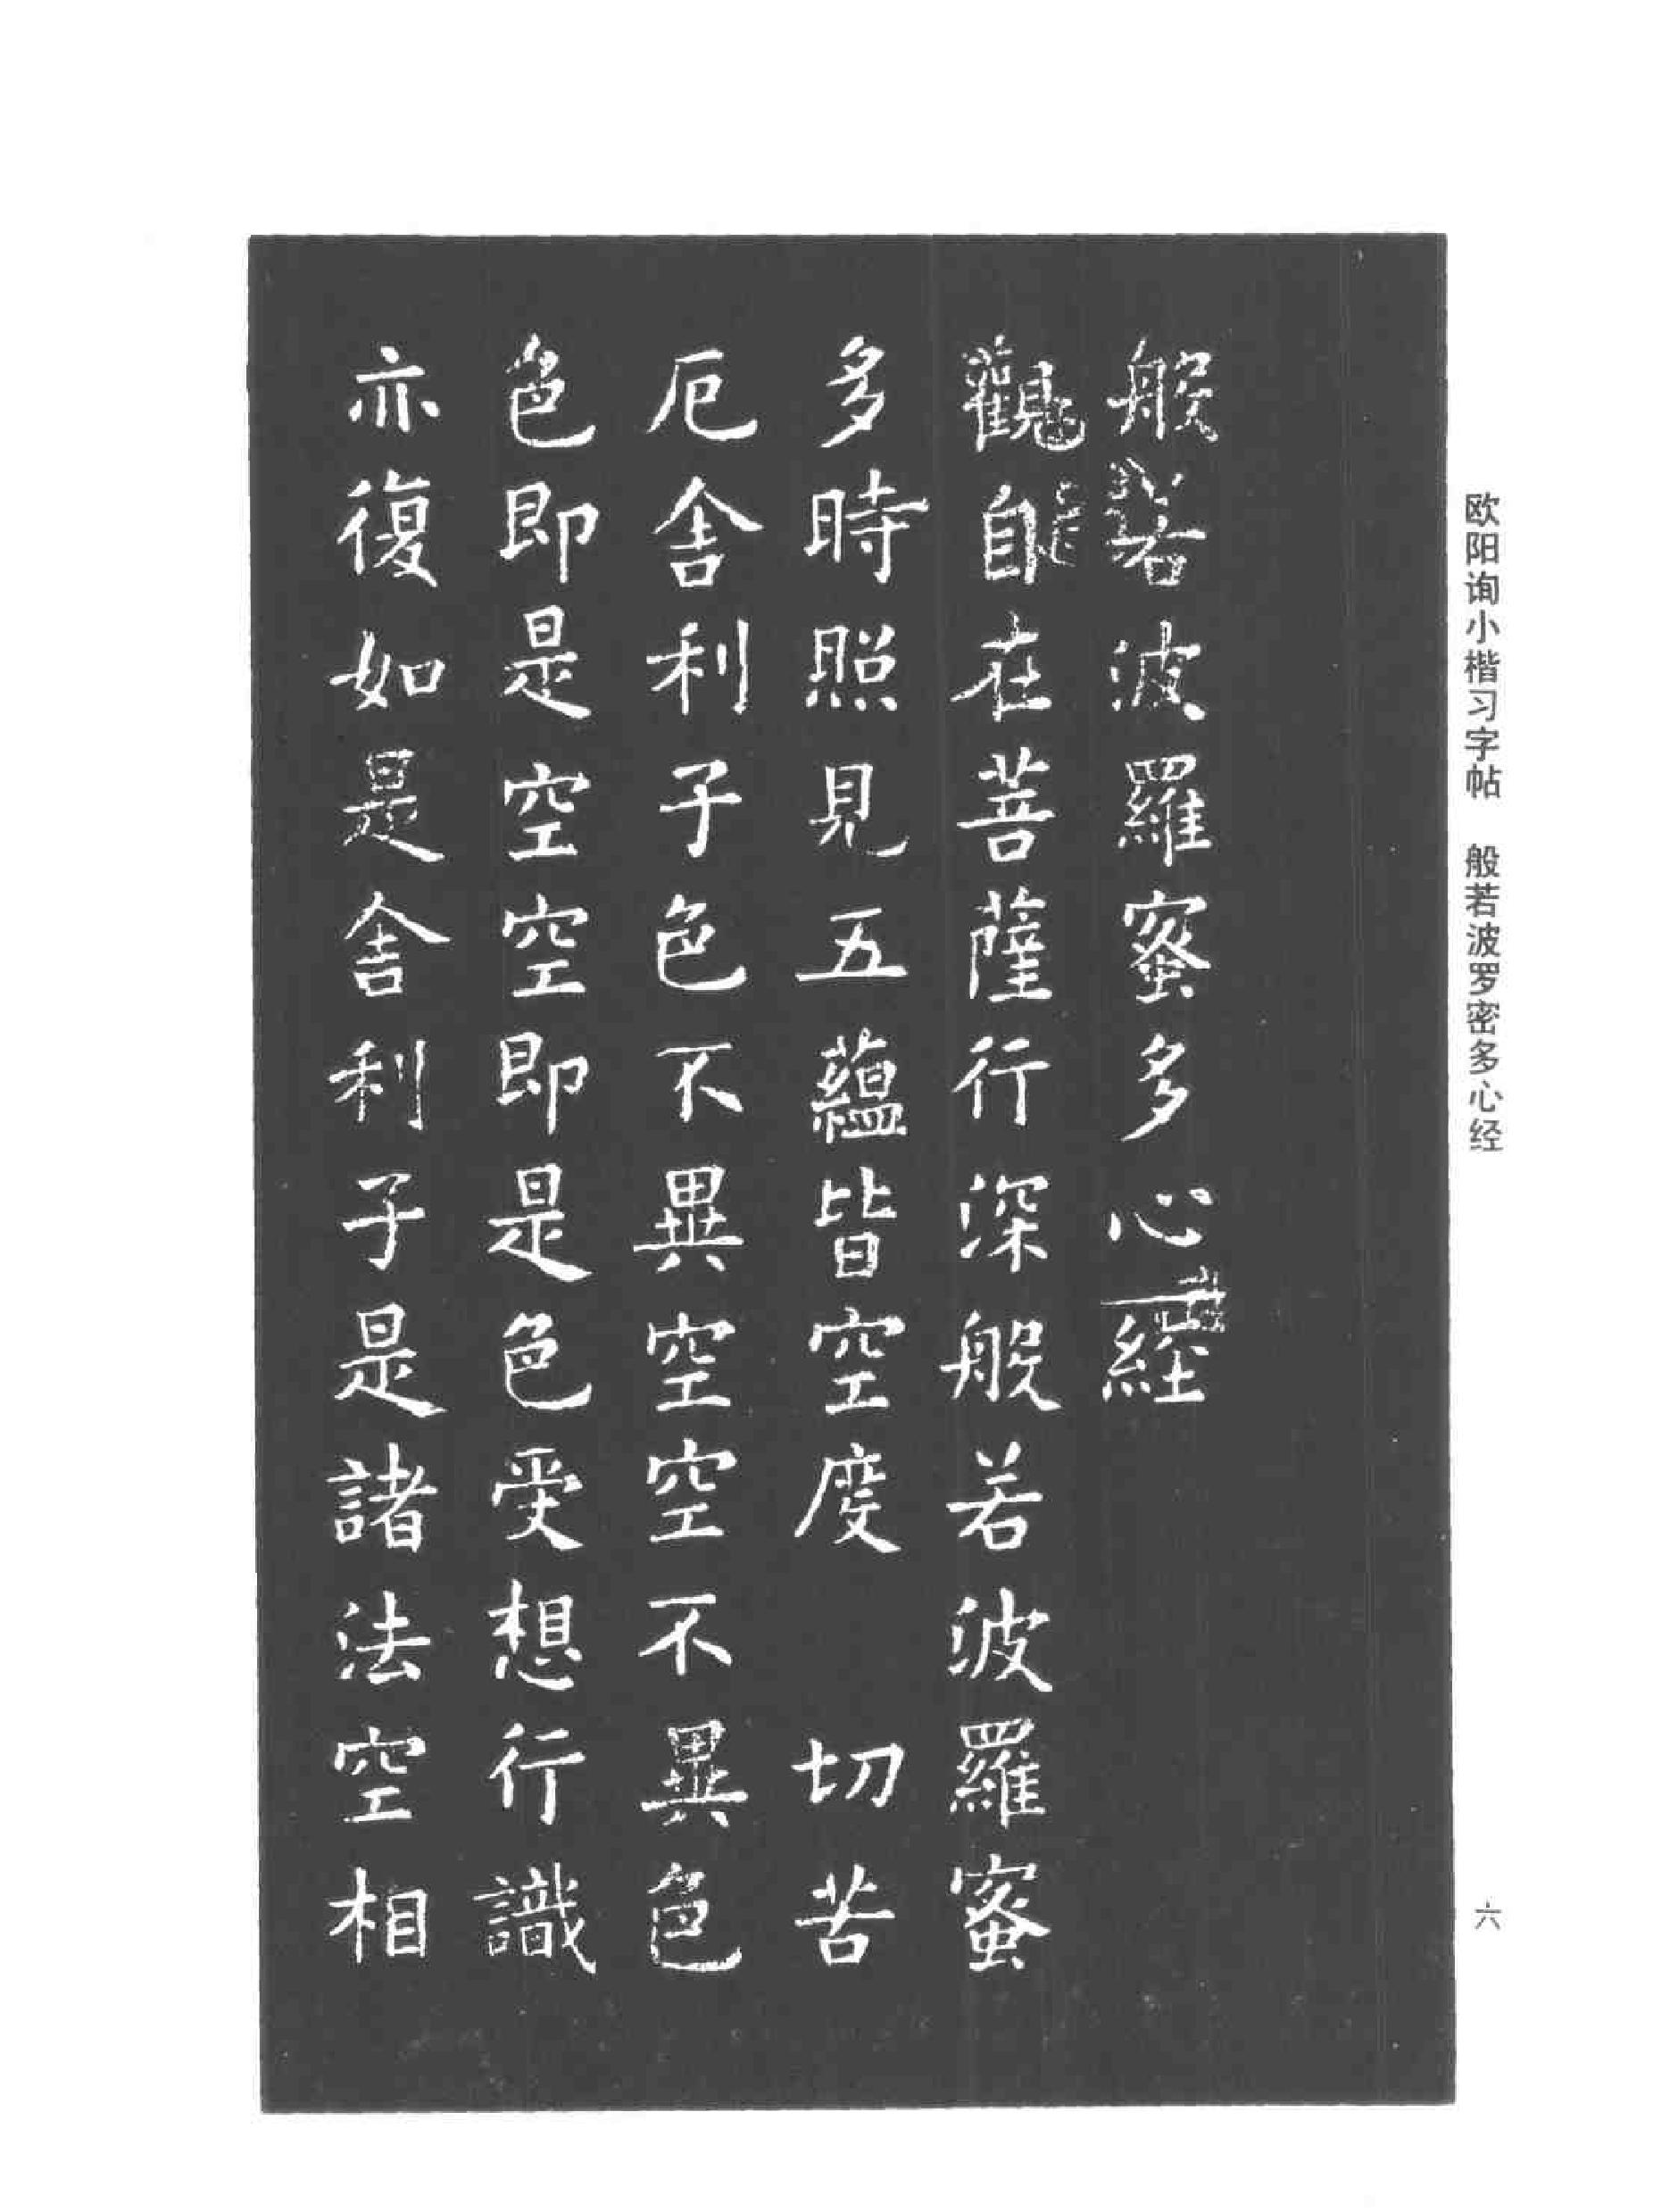 欧阳询小楷习字帖 般若波罗密多心经
六
般若波羅蜜多心經
觀自在菩薩行深般若波羅蜜
多時照見五蘊皆空度 切苦
厄舍利子色不異空空不異色
色即是空空即是色受想行識
亦復如是舍利子是諸法空相